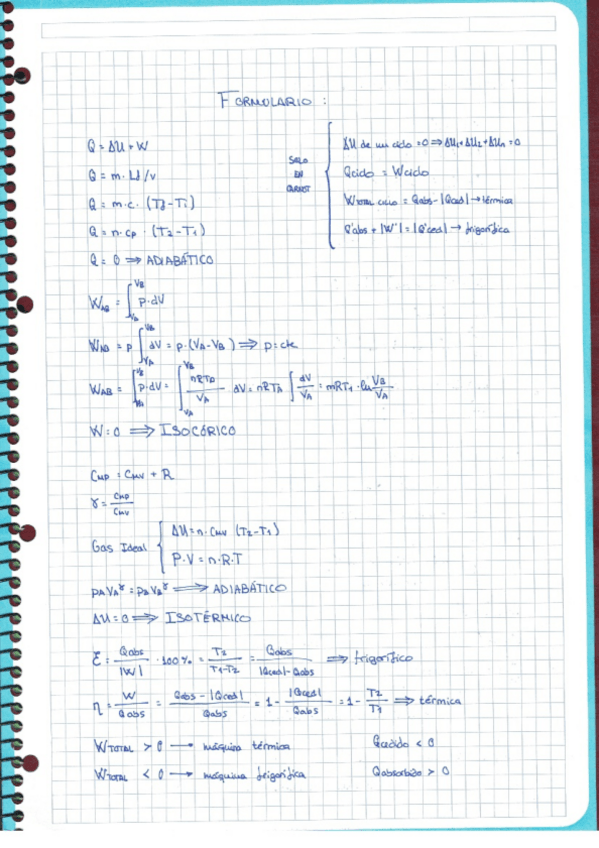 FORMULARIO :
Q = ΔU + W
Q = m · Lf/v
Q = m·c· (T2-T1)
Q = n·cp · (T2-T1)
Q = 0 ⟹ ADIABÁTICO
SOLO
EN
CARNOT
ΔU de un ciclo = 0 ⟹ ΔU1+ΔU2+ΔUn = 0
Qciclo = Wciclo
WTOTAL CICLO = Qabs - |Qced| → térmica
Qabs + |W| = |Qced| → frigorífica
WAB = ∫_VA^VB p·dV
WAB = p ∫_VA^VB dV = p·(VA-VB) ⟹ p=cte
WAB = ∫_VA^VB p·dV = ∫_VA^VB nRTA/VA dV = nRTA ∫ dV/VA = mRT1 · ln VB/VA
W = 0 ⟹ ISOCÓRICO
CMP = CMV + R
γ = CMP/CMV
Gas Ideal { ΔU = n·CMV (T2-T1)
P·V = n·R·T
PAVA^γ = PBVB^γ ⟹ ADIABÁTICO
ΔU = 0 ⟹ ISOTÉRMICO
ξ = Qabs/|W| · 100 % = T2/T1-T2 = Qabs/|Qced|-Qabs ⟹ frigorífico
η = W/Qabs = Qabs - |Qced|/Qabs = 1 - |Qced|/Qabs = 1 - T2/T1 ⟹ térmica
WTOTAL > 0 → máquina térmica
Qcedido < 0
WTOTAL < 0 → máquina frigorífica
Qabsorbido > 0